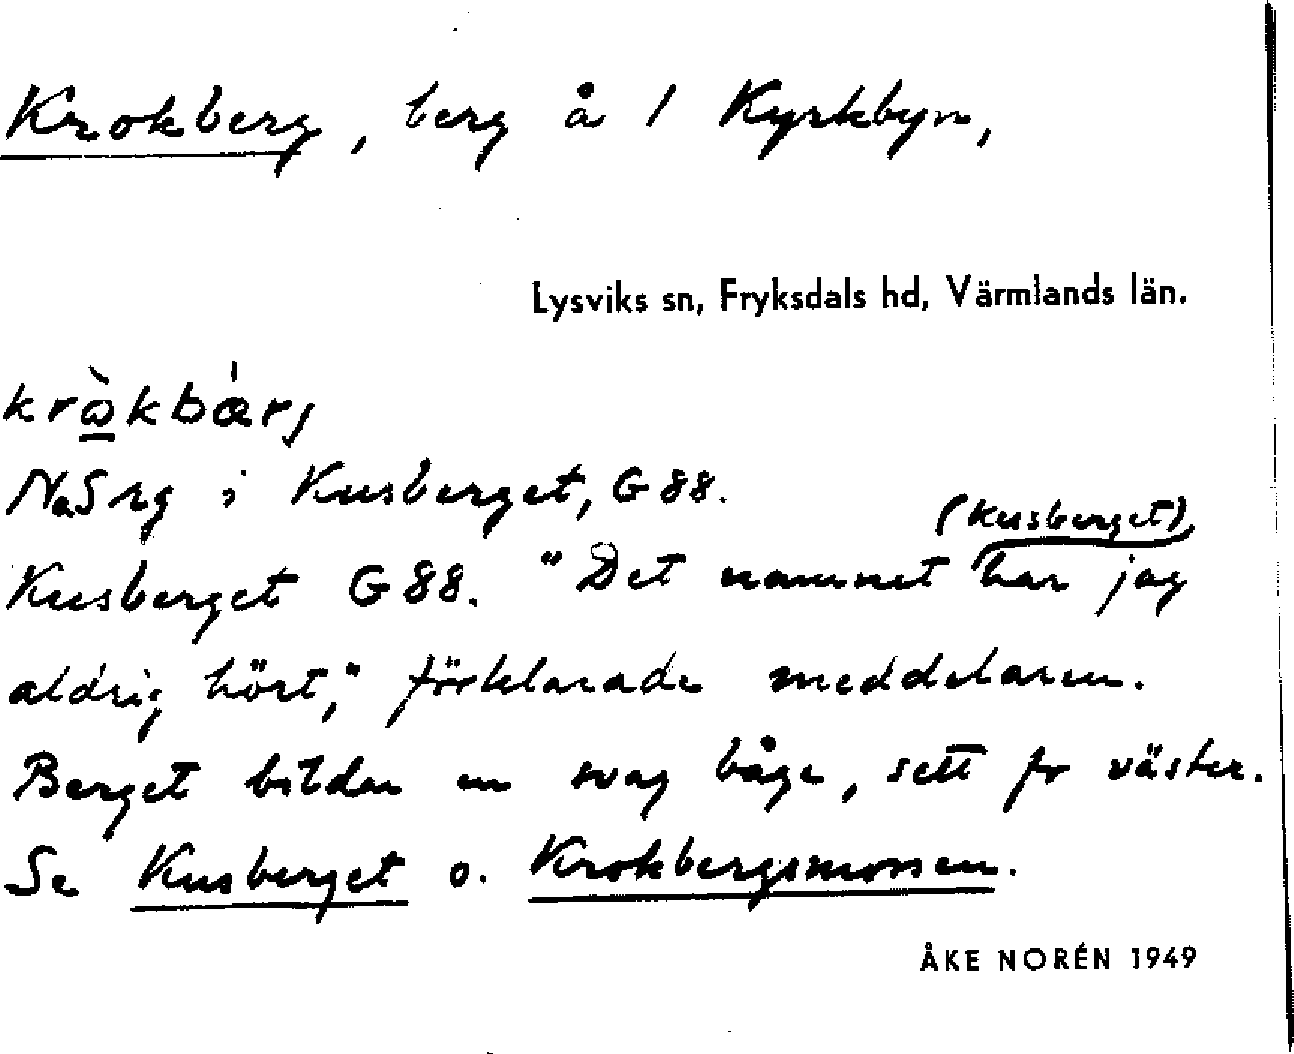 Krokberg, berg å 1 Kyrkbyn,
Lysviks sn, Fryksdals hd, Värmlands län.
krò̱kbæ̀rj
NaSrg i Kusberget, G 88.
(Kusberget)
Kusberget G 88. "Det namnet har jag
aldrig hört," förklarade meddelaren.
Berget bildar en svag båge, sett fr väster.
Se Kusberget o. Krokbergsmossen.
ÅKE NORÉN 1949